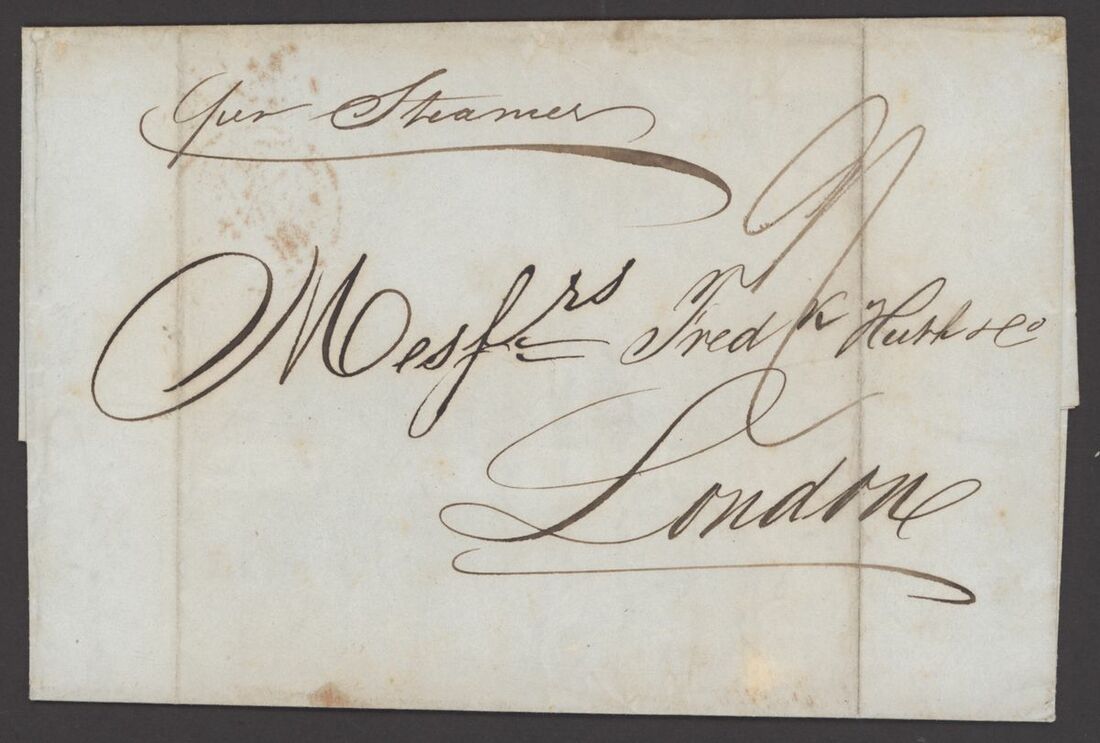 per Steamer
Messrs Fredk Huth & Co
London